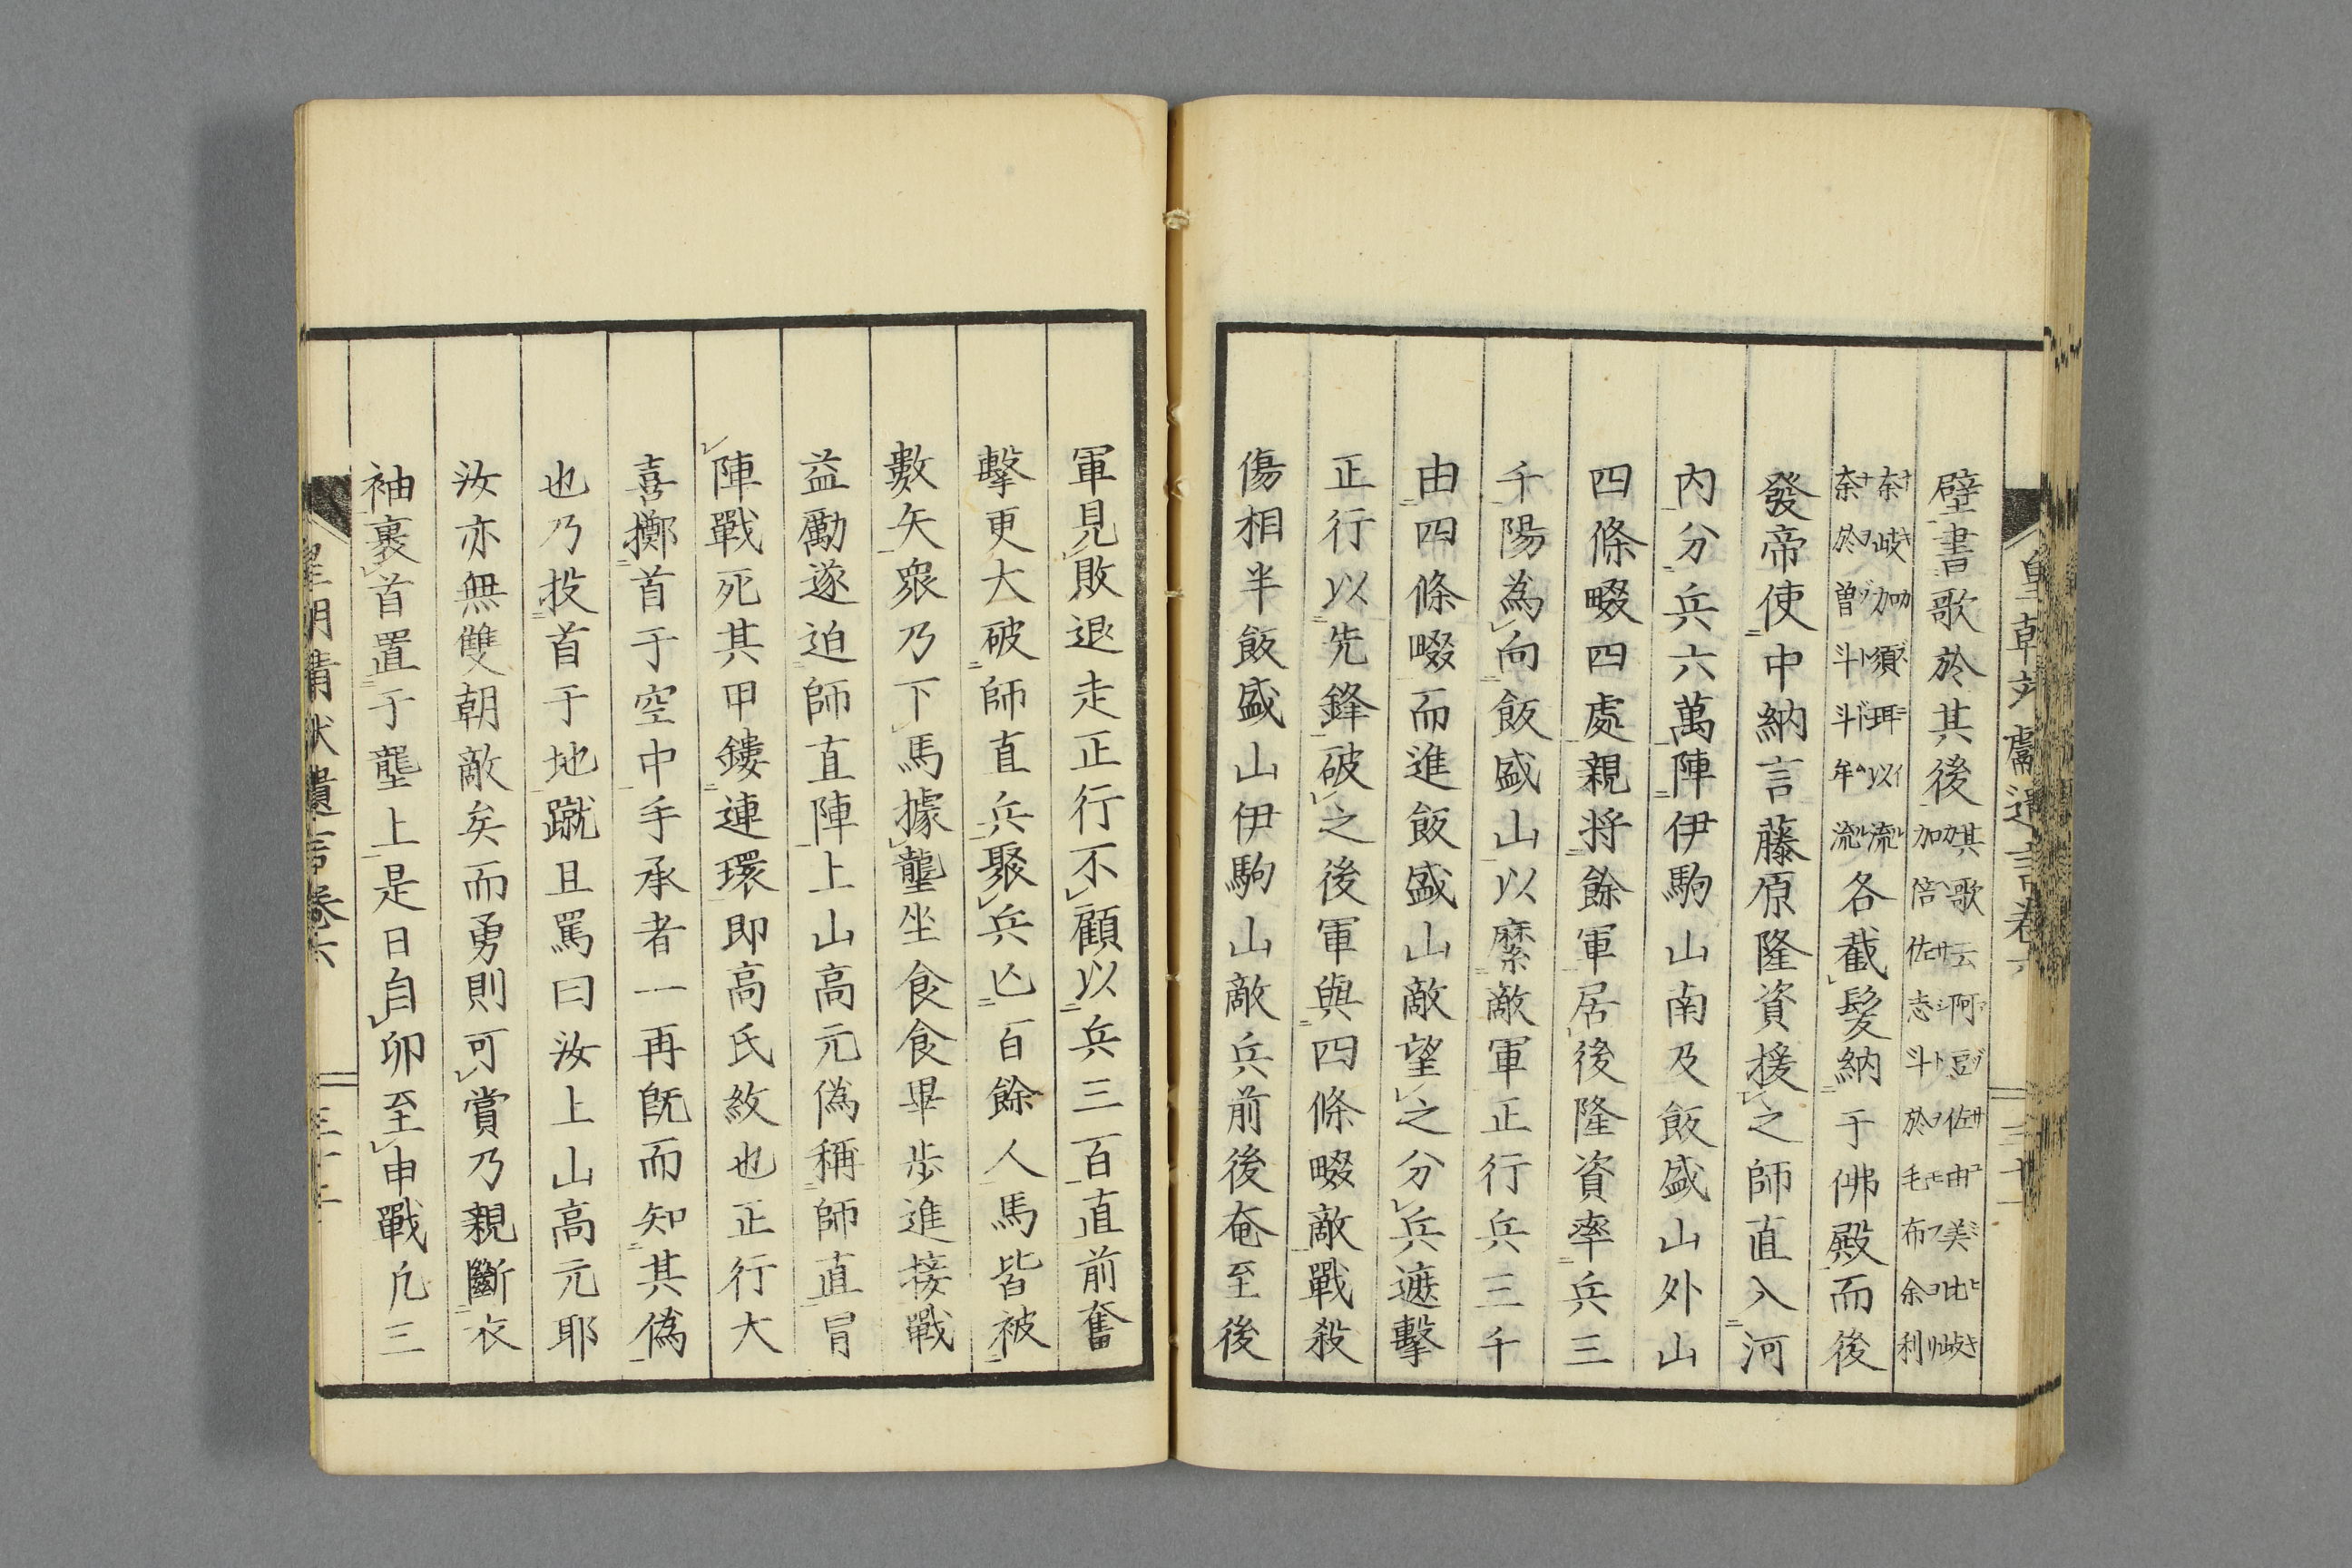 壁書歌於其後其歌云阿豆佐由美比岐
加倍佐志斗於毛布余利
奈岐加須珥以流
奈於曽斗斗牟流各截髮納于佛殿而後
發帝使中納言藤原隆資援之師直入河
内分兵六萬陣伊駒山南及飯盛山外山
四條畷四處親将餘軍居後隆資率兵三
千陽為向飯盛山以縻敵軍正行兵三千
由四條畷而進飯盛山敵望之分兵遮擊
正行以先鋒破之後軍與四條畷敵戰殺
傷相半飯盛山伊駒山敵兵前後奄至後
軍見敗退走正行不顧以兵三百直前奮
擊更大破師直兵聚兵亡百餘人馬皆被
數矢衆乃下馬據壟坐食食畢步進接戰
益勵遂迫師直陣上山高元偽稱師直冒
陣戰死其甲鏤連環即高氏紋也正行大
喜擲首于空中手承者一再既而知其偽
也乃投首于地蹴且罵曰汝上山高元耶
汝亦無雙朝敵矣而勇則可賞乃親斷衣
袖裹首置于壟上是日自卯至申戰凢三